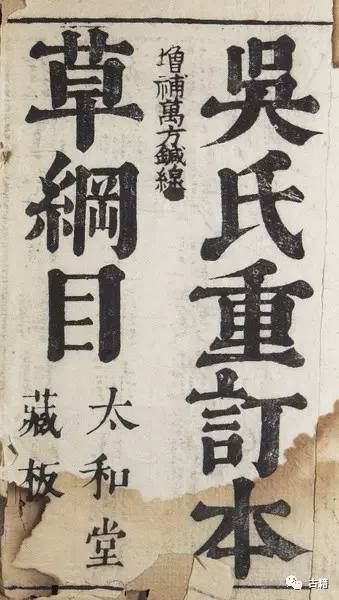 吳氏重訂本
增補萬方鍼線
草綱目
太和堂
藏板
古籍